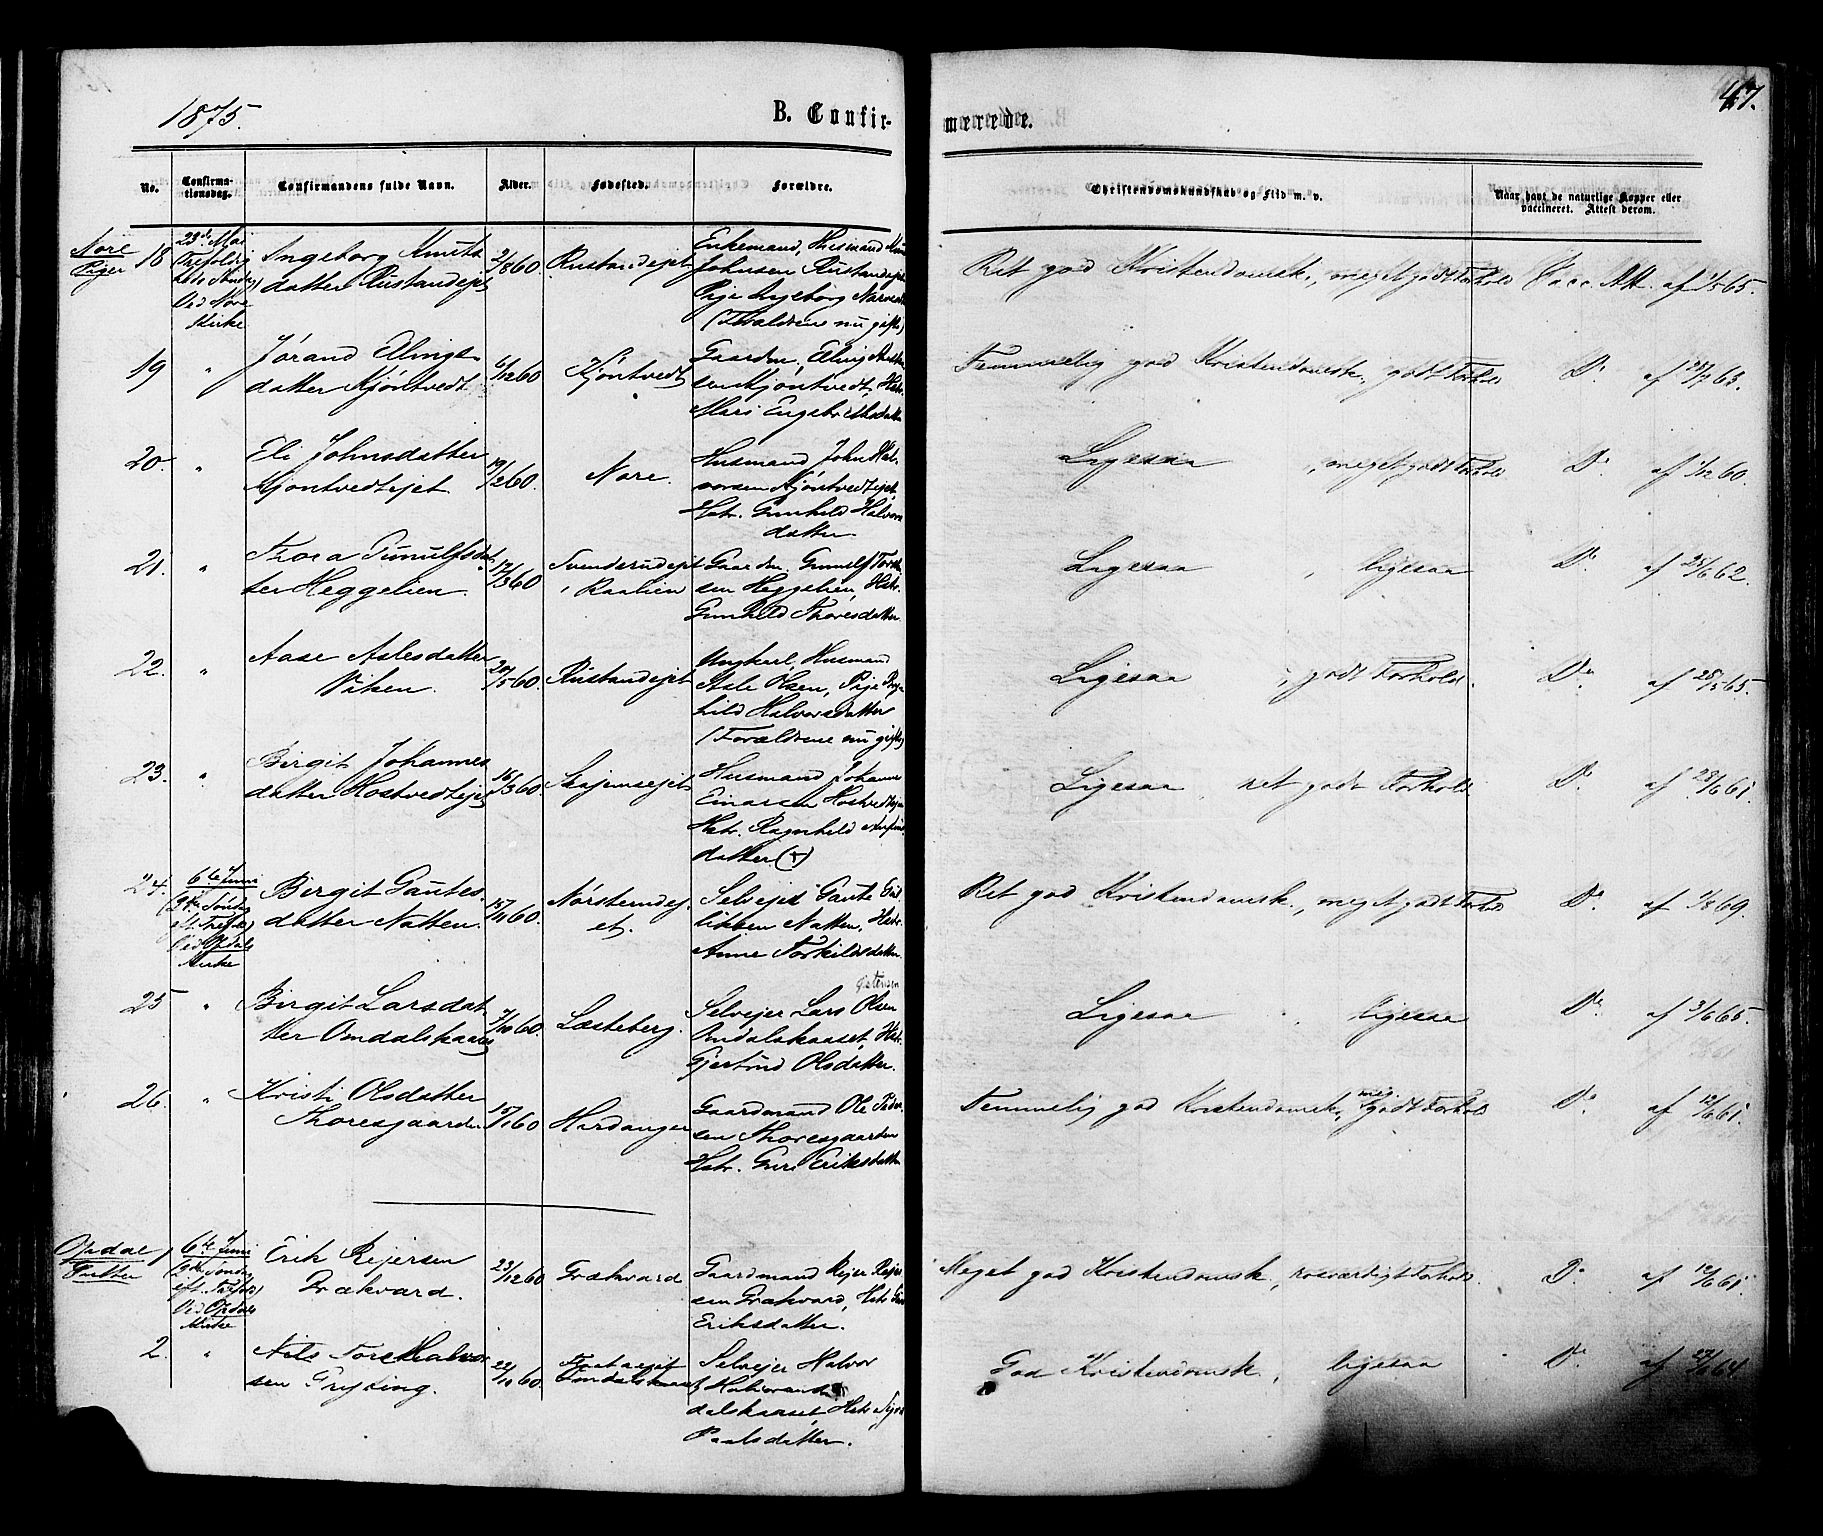 1875.
B. Confir-
merede.
47.
No.
Confirma-
tionsdag.
Confirmandens fulde Navn.
Alder.
Fødested.
Forældre.
Christendomskundskab og Flid m. v.
Naar havt de naturlige Kopper eller
vaccineret. Attest derom.
Nore
Piger
18
23de Mai
Trefoldig
heds Søndag
Ved Nore
Kirke
Ingeborg Knuts
datter Rustandejet
2/8 60
Rustandejet
Enkemand, Husmand Knut
Johnsen Rustandejet
Pige Ingeborg
(Forældrene nu gifte)
Ret god Kristendomsk., meget godt Forhold
Vacc. Att. af 1/5 65.
19
"
Jørand Elings-
datter Kjøntvedt
6/12 60
Kjøntvedt
Gaardm. Eling
sen Kjøntvedt, Hstr.
Mari Engebrethsdatter
Temmelig god Kristendomsk., godt Forhold
Do
af 23/7 63.
20.
"
Eli Johnsdatter
Kjøntvedtejet
19/2 60.
Nore.
Husmand John Hal-
vorsen Kjøntvedtejet
Hstr. Gunhild Halvors
datter
Ligesaa, meget godt Forhold
Do
af 1/12 60.
21.
"
Thora Gunulfsdat
ter Heggelien.
17/3 60
Svenderudejet
i Raalien
Gaardm. Gunulf Torste
sen Heggelien, Hstr.
Gunhild Thoresdatter
Ligesaa, ligesaa
Do
af 25/6 62.
22.
"
Aase Aslesdatter
Viken.
20/5 60.
Rustandejet
Ungkarl, Husmand
Asle Olsen, Pige Ragn
hild Halvorsdatter
(Forældrene nu gifte)
Ligesaa, godt Forhold.
Do
af 28/5 65.
23.
"
Birgit Johannes
datter Hostvedtejet
16/3 60.
Skajemsejet
Husmand Johannes
Einarsen Hostvedtejet
Hstr. Ragnhild
datter (+)
Ligesaa, ret godt Forhold
Do.
af 23/6 61.
24.
6te Juni
(2den Søndag
eft. Trefold)
Ved Opdals
Kirke
Birgit Gautes
datter Natten.
15/11 60.
Nørsterudej-
et.
Selvejer Gaute
Natten, Hstr.
Anne Torkildsdatter
Ret god Kristendomsk., meget godt Forhold
Do
af 1/8 69.
25
"
Birgit Larsdat
ter Omdalskaaset
7/10 60.
Læsteberg.
Østensen
Selvejer Lars Olsen
Omdalskaaset, Hstr.
Gjertrud Olsdatter.
Ligesaa, ligesaa
Do
af 3/6 65.
26.
"
Kristi Olsdatter
Thoresgaarden
15/1 60
Hardanger
Gaardmand Ole Peder
sen Thoresgaarden
Hstr. Guri Eriksdatter
Temmelig god Kristendomsk., meg. godt Forhold
Do
af 12/6 61.
Opdal
Gutter
1
6te Juni
(2den Søndag
eft. Trefold)
Ved Opdals
Kirke
Erik Reiersen
Frækvard.
23/12 60
Frækvard
Gaardmand Reier Reier
sen Frækvard, Hstr
Eriksdatter.
Meget god Kristendomsk., rosværdigt Forhold.
Do
af 12/6 61.
2.
"
Nils Tore Halvor
sen
22/10 60.
Omdalskaaset
Selvejer Halvor
Halvorsen
dalskaaset, Hstr
Paalsdatter.
God Kristendomsk., ligesaa
Do
af 27/6 64